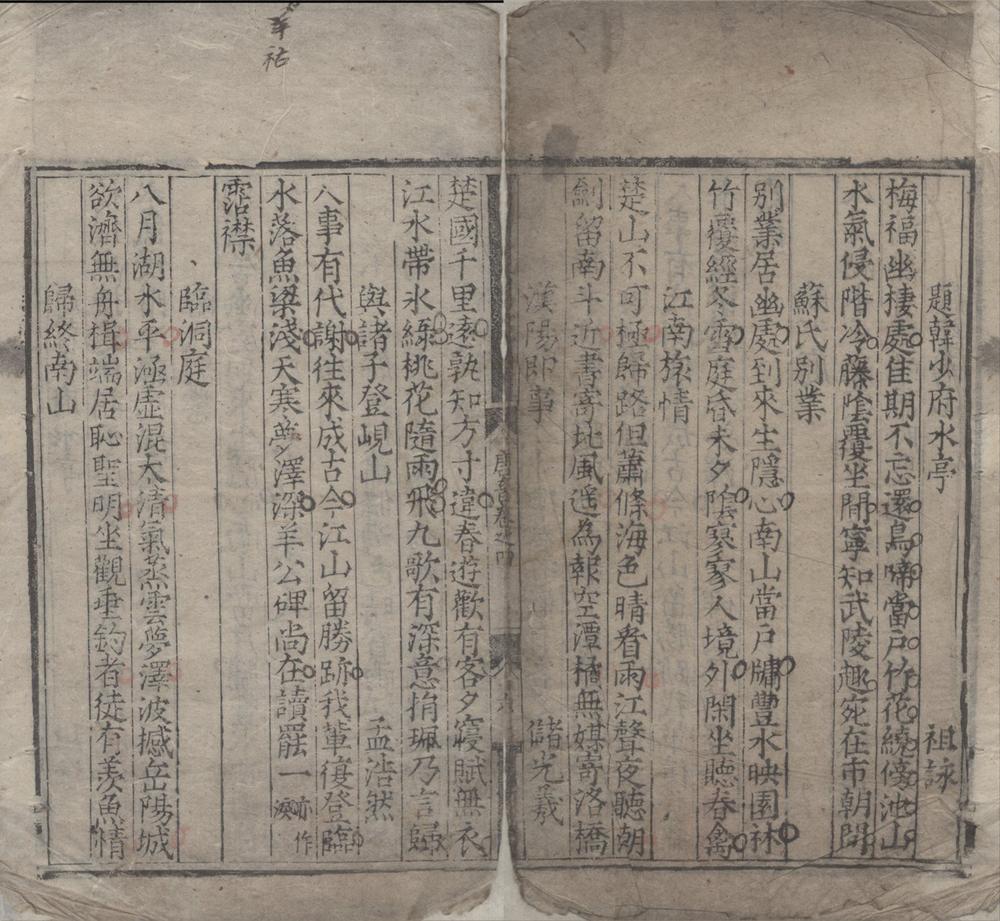 題韓少府水亭 祖詠
梅福幽棲處佳期不忘還鳥啼當戶竹花繞傍池山
水氣侵階冷藤陰覆坐閒寧知武陵趣宛在市朝間
蘇氏別業
別業居幽處到來生隱心南山當戶牖豐水映園林
竹覆經冬雪庭昏未夕陰寥寥人境外閑坐聽春禽
江南旅情
楚山不可極歸路但蕭條海色晴看雨江聲夜聽朝
劍留南斗近書寄北風遙為報空潭橘無媒寄洛橋
漢陽即事 儲光羲
楚國千里遠孰知方寸違春遊歡有客夕寢賦無衣
江水帶冰綠桃花隨雨飛九歌有深意捐珮乃言歸
與諸子登峴山 孟浩然
人事有代謝往來成古今江山留勝跡我輩復登臨
水落魚梁淺天寒夢澤深羊公碑尚在讀罷一亦作淚
霑襟
臨洞庭
八月湖水平涵虛混太清氣蒸雲夢澤波撼岳陽城
欲濟無舟楫端居恥聖明坐觀垂釣者徒有羨魚情
歸終南山
唐音卷之四
六
羊祜